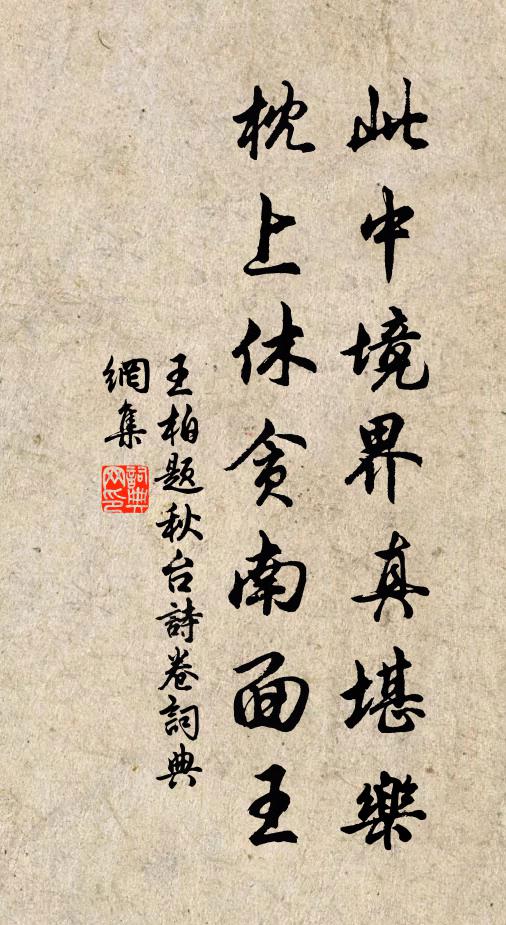 此中境界真堪樂
枕上休贪南面王
王柏题秋台詩卷詞典
網集
詞典
网印